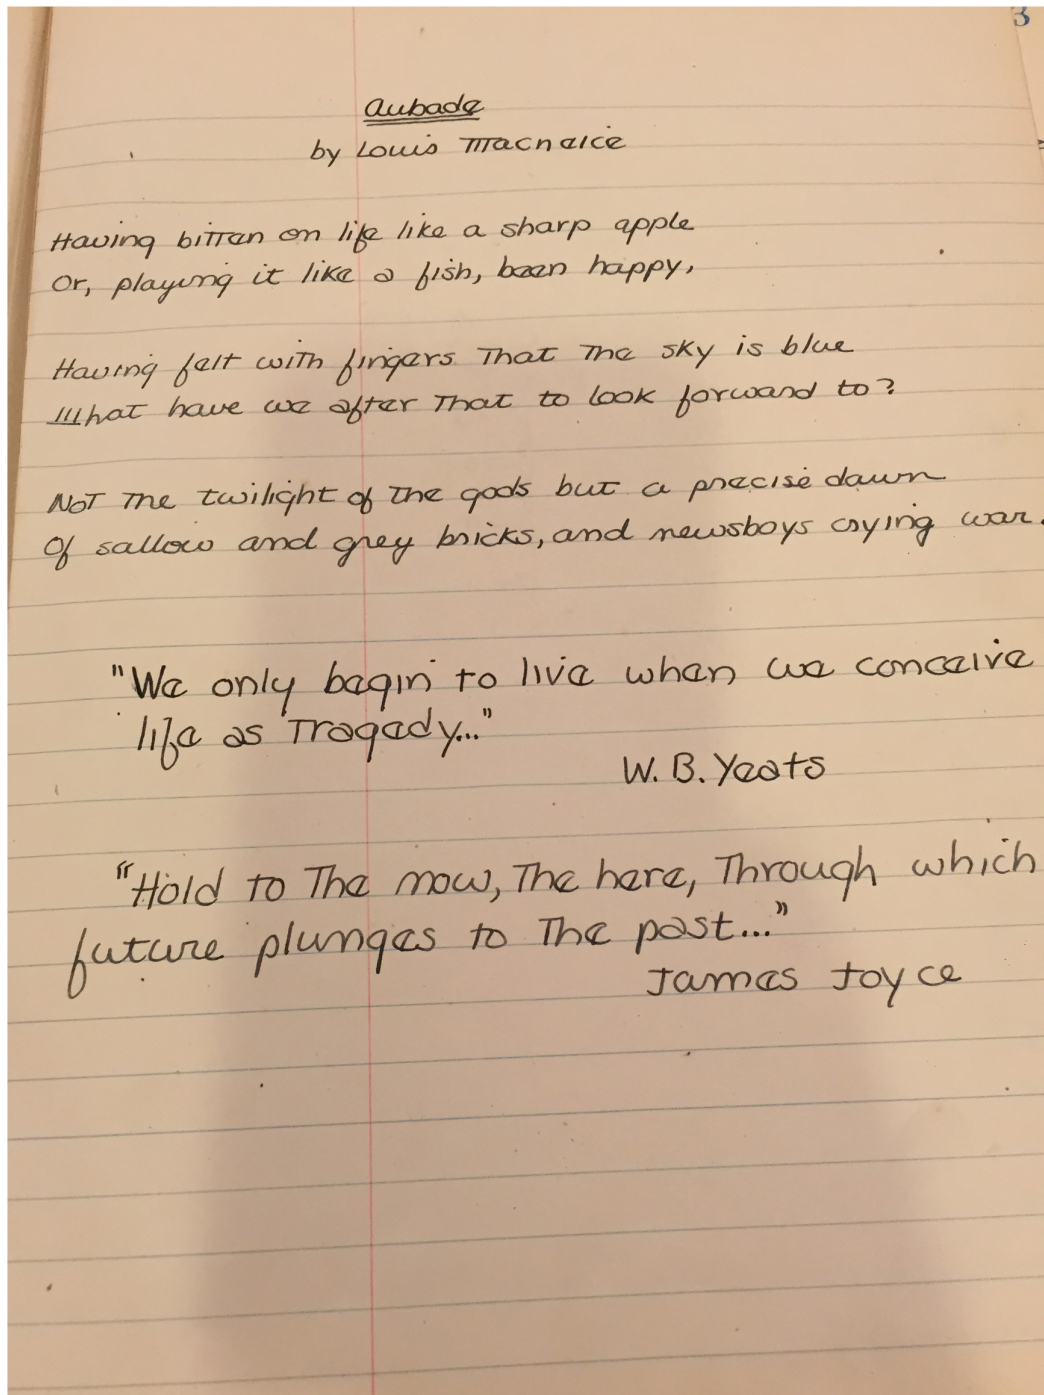 3
Aubade
by Louis Macneice
Having bitten on life like a sharp apple
Or, playing it like a fish, been happy,
Having felt with fingers that the sky is blue
What have we after that to look forward to?
Not the twilight of the gods but a precise dawn
Of sallow and grey bricks, and newsboys crying war.
"We only begin to live when we conceive
life as Tragedy..."
W. B. Yeats
"Hold to the now, the here, Through which
future plunges to the past..."
James Joyce